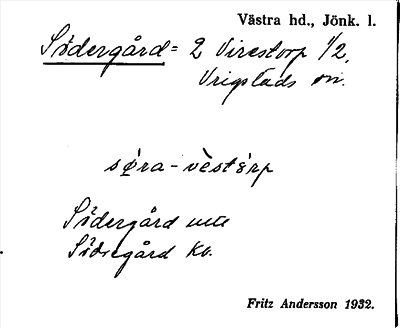 Västra hd., Jönk. l.
Södergård = 2 Virestorp 1/2,
Vrigstads sn.
Södergård
Södregård Kb.
Fritz Andersson 1932.